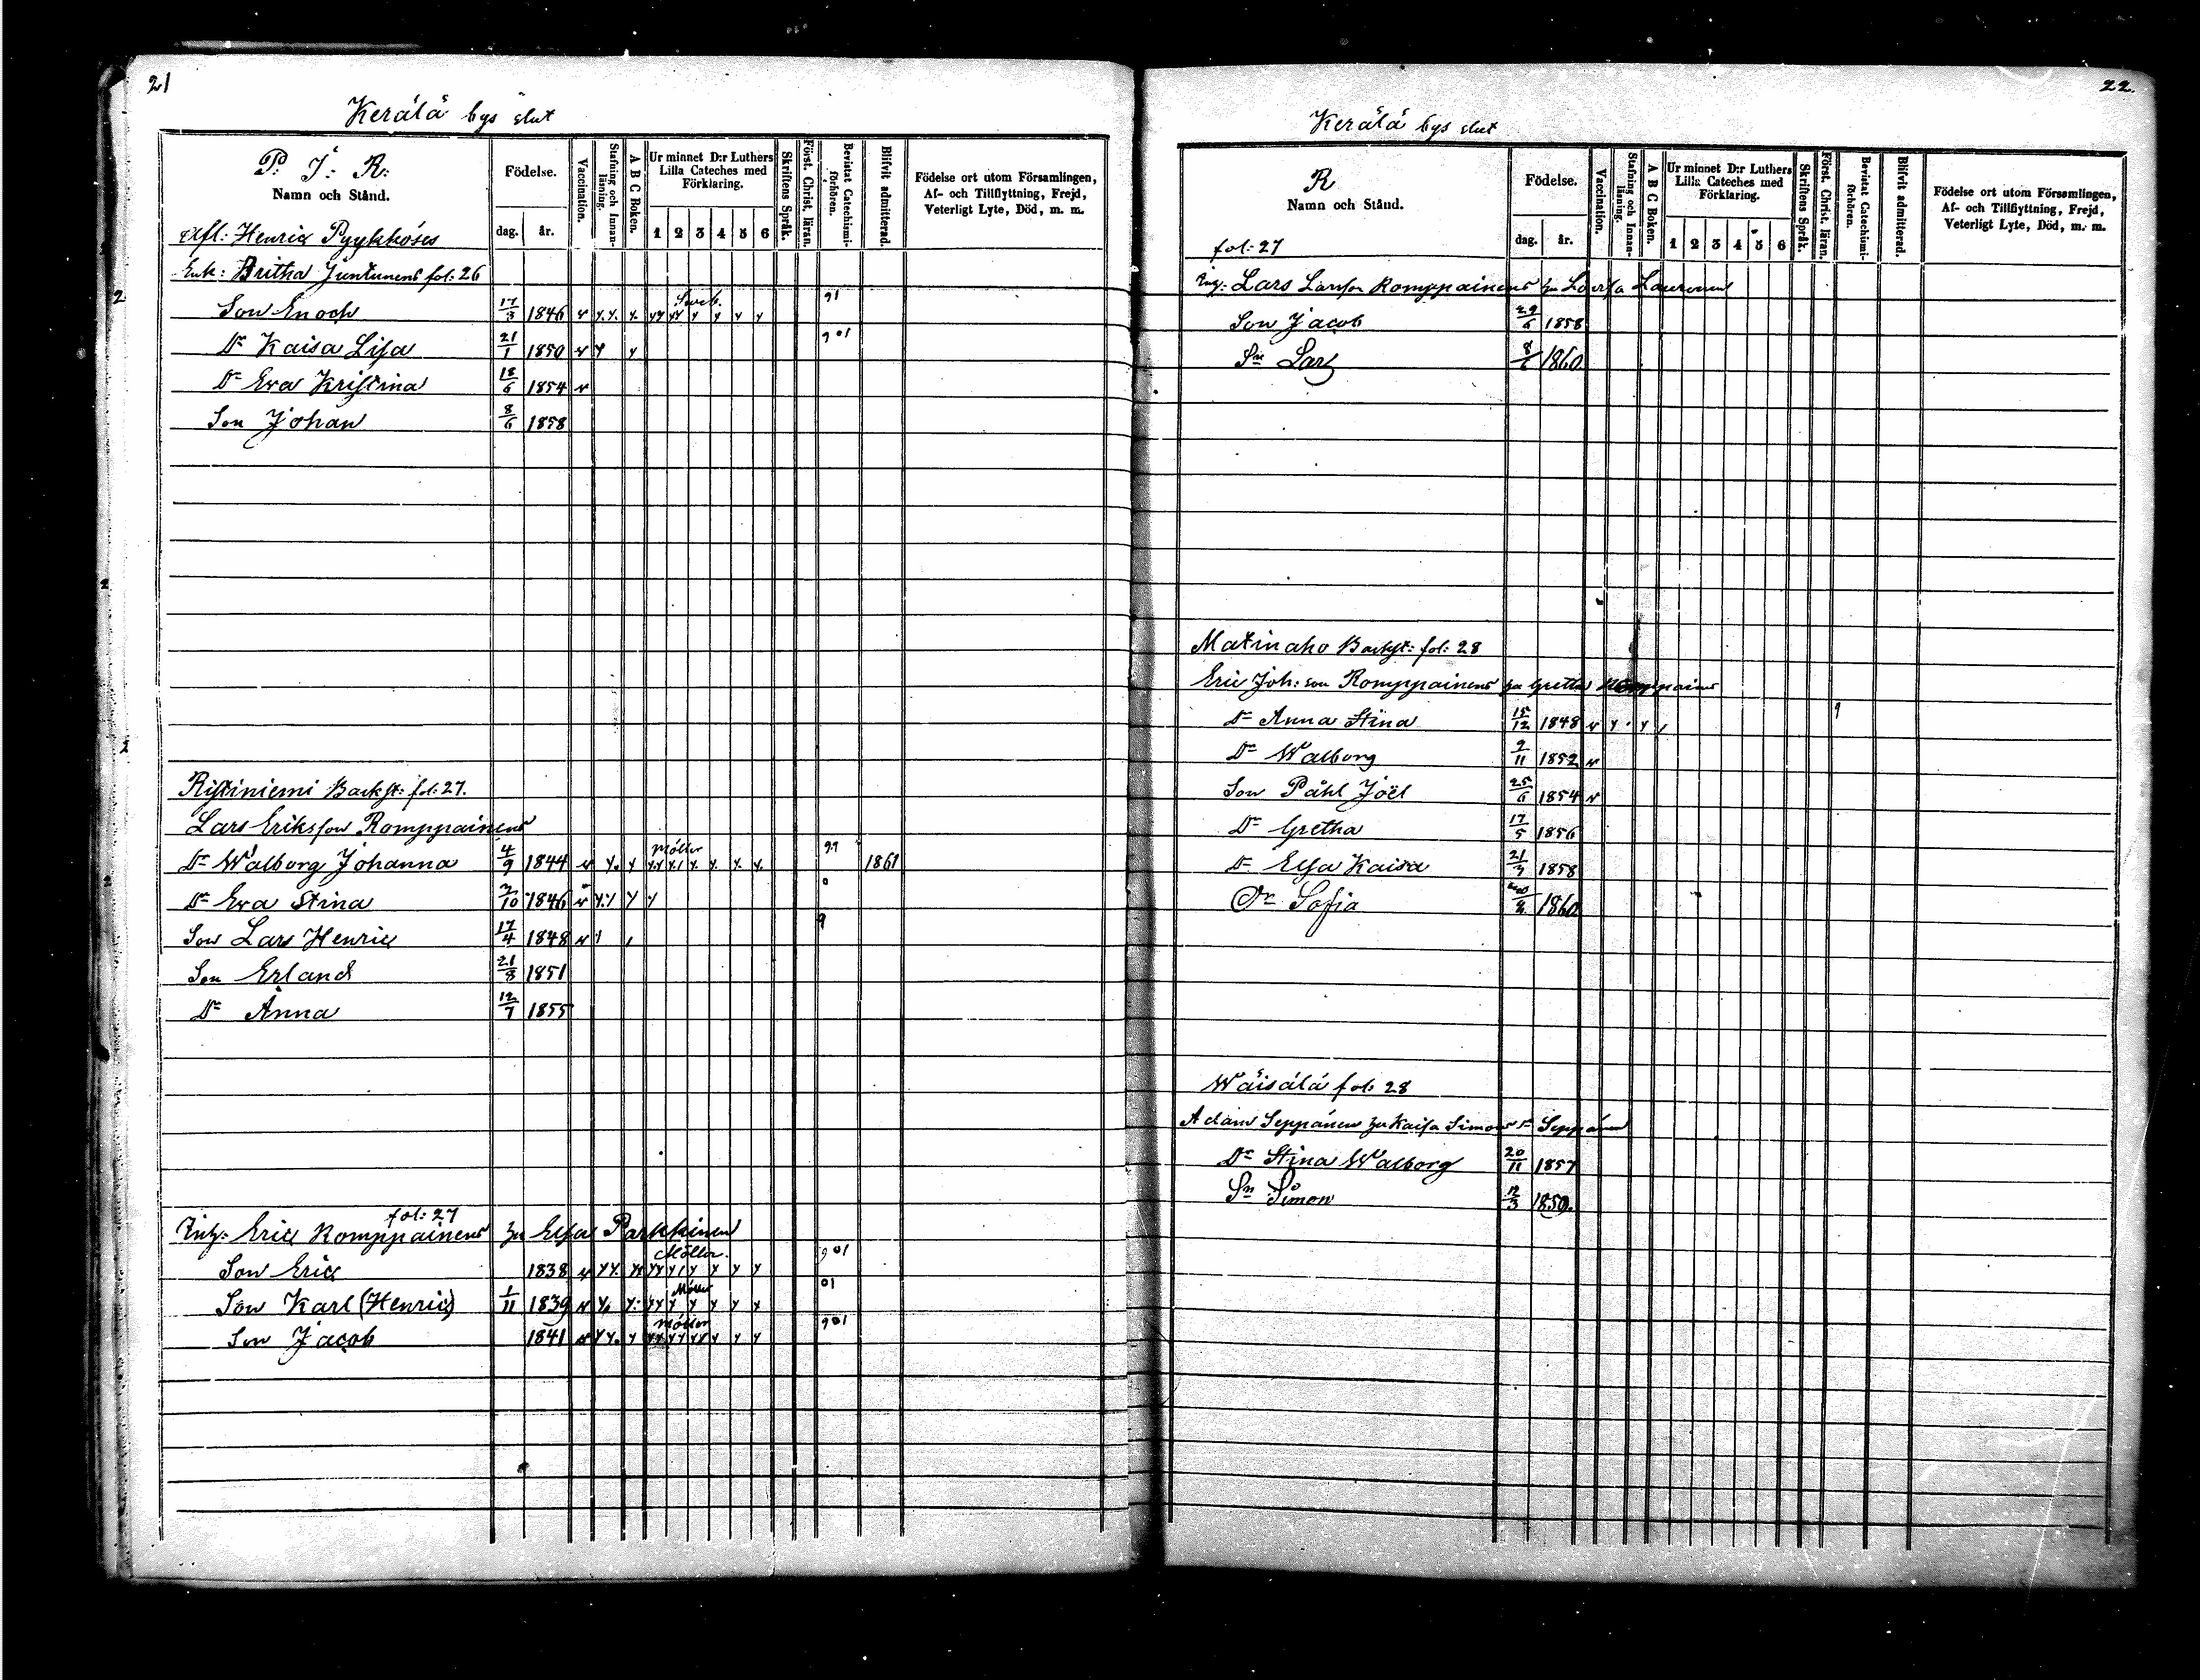 21
Kerälä bys slut
P: J: R:
Namn och Stånd.
Födelse.
dag.
år.
Vaccination.
Stafning och Innanläsning.
A B C Boken.
Ur minnet D:r Luthers Lilla Cateches med Förklaring.
1 2 3 4 5 6
Skriftens Språk.
Först. Christ. läran.
Bevistat Catechismiförhören.
Blifvit admitterad.
Födelse ort utom Församlingen, Af- och Tillflyttning, Frejd, Veterligt Lyte, Död, m. m.
Afl: Henric Pyykkö́ses
Enk: Britha Juntunens fol: 26
Son Enoch 17/3 1846 v 91
Dr Kaisa Lisa 21/1 1850 v 901
Dr Eva Kristina 18/6 1854 v
Son Johan 8/6 1858
Ristiniemi Backst: fol: 27.
Lars Eriksson Romppainens
Dr Walborg Johanna 4/9 1844 v Möller 91 1861
Dr Eva Stina 2/10 1846 v 0
Son Lars Henric 17/4 1848 v 9
Son Erland 21/8 1851
Dr Anna 12/7 1855
fol: 27
Inh: Eric Romppainens ha Elsa Parkkinen
Son Eric 1838 v Möller 901
Son Karl (Henric) 1/11 1839 v Möller 01
Son Jacob 1841 v Möller 901
22.
Kerälä bys slut
R
Namn och Stånd.
Födelse.
dag.
år.
Vaccination.
Stafning och Innanläsning.
A B C Boken.
Ur minnet D:r Luthers Lilla Cateches med Förklaring.
1 2 3 4 5 6
Skriftens Språk.
Först. Christ. läran.
Bevistat Catechismiförhören.
Blifvit admitterad.
Födelse ort utom Församlingen, Af- och Tillflyttning, Frejd, Veterligt Lyte, Död, m. m.
fol: 27
Lars Larsson Romppainens Lovisa Laurinen
Son Jacob 29/6 1858
Sn Lars 8/6 1860
Matinaho Backst: fol: 28
Eric Joh: son Romppainens ha Gretha Romppainen
Dr Anna Stina 15/12 1848 v 9
Dr Walborg 2/11 1852 v
Son Påhl Joël 25/6 1854 v
Dr Gretha 17/5 1856
Dr Elsa Kaisa 21/3 1858
Dr Sofia 1860
Wäisälä fol: 28
Adam Seppänen ha Kaisa Simons dr Seppänen
Dr Stina Walborg 20/11 1857
Sn Simon 12/3 1859.